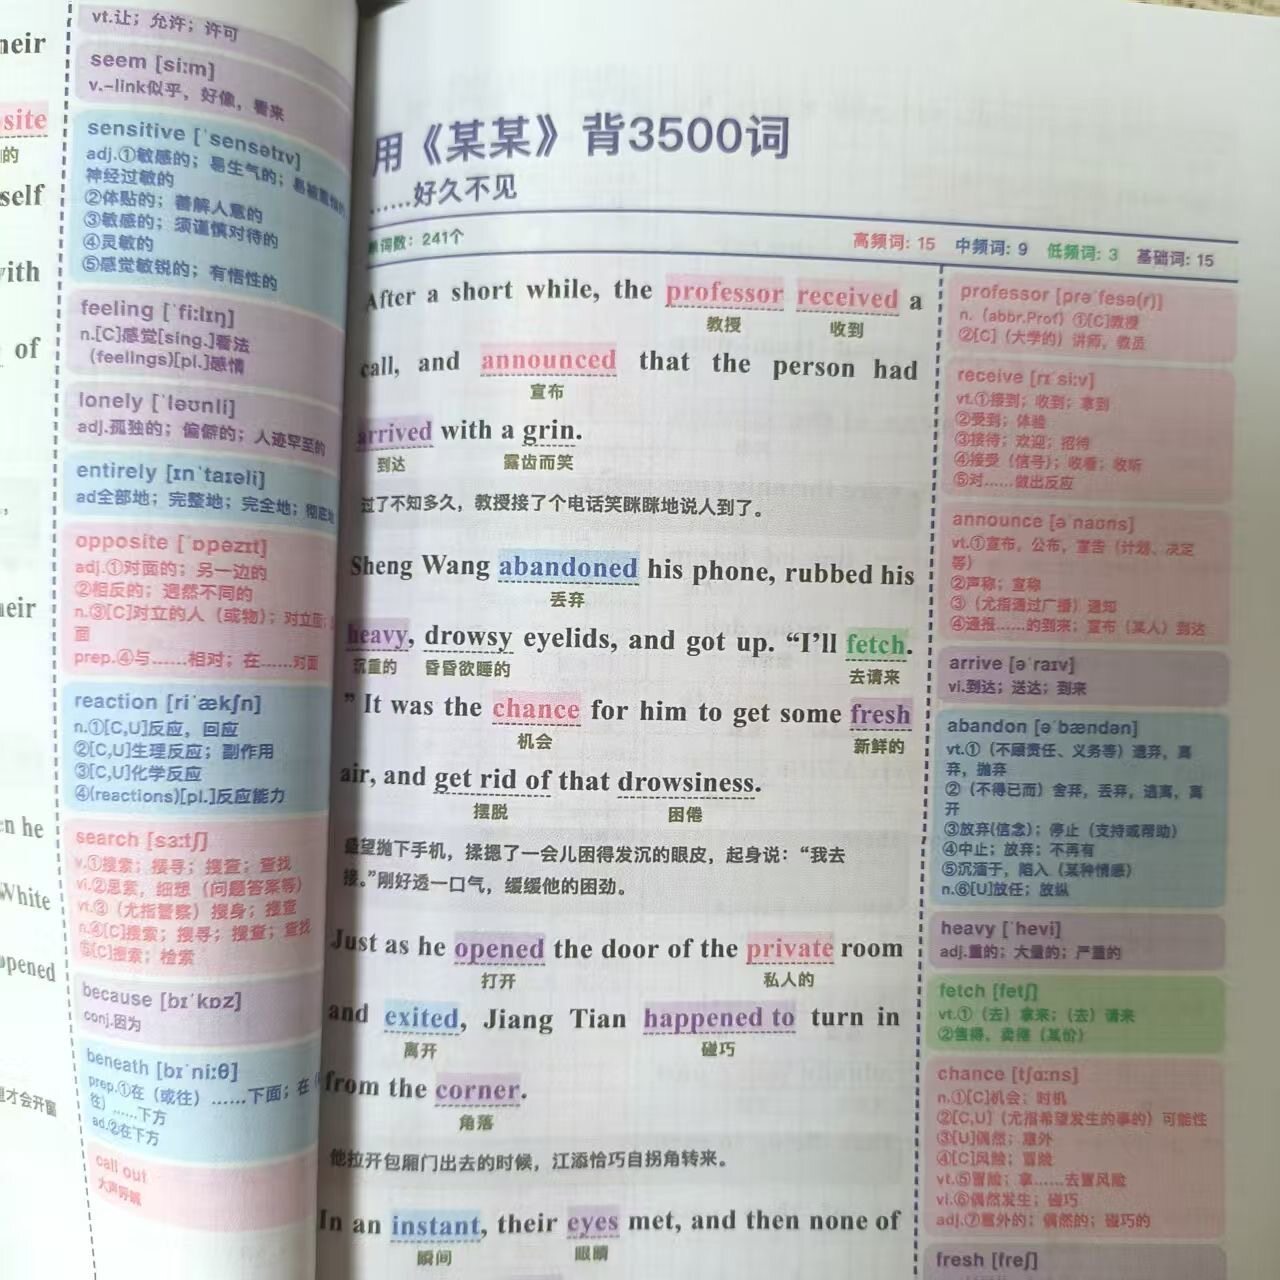 heir
site
的
self
with
of
heir
en he
White
opened
才会开窗
vt.让；允许；许可
seem [siːm]
v.-link似乎，好像，看来
sensitive [ˈsensətɪv]
adj.①敏感的；易生气的；易被
神经过敏的
②体贴的；善解人意的
③敏感的；须谨慎对待的
④灵敏的
⑤感觉敏锐的；有悟性的
feeling [ˈfiːlɪŋ]
n.[C]感觉[sing.]看法
（feelings)[pl.]感情
lonely [ˈləʊnli]
adj.孤独的；偏僻的；人迹罕至的
entirely [ɪnˈtaɪəli]
ad全部地；完整地；完全地；彻底地
opposite [ˈɒpəzɪt]
adj.①对面的；另一边的
②相反的；迥然不同的
n.③[C]对立的人（或物）；对立面；
面
prep.④与……相对；在……对面
reaction [riˈækʃn]
n.①[C,U]反应，回应
②[C,U]生理反应；副作用
③[C,U]化学反应
④(reactions)[pl.]反应能力
search [sɜːtʃ]
v.①搜索；搜寻；搜查；查找
vi.②思索，细想（问题答案等）
vt.③（尤指警察）搜身；搜查
n.④[C]搜索；搜寻；搜查；查找
⑤[C]搜索；检索
because [bɪˈkɒz]
conj.因为
beneath [bɪˈniːθ]
prep.①在（或往）……下面；在（
往）……下方
ad.②在下方
call out
大声呼喊
用《某某》背3500词
……好久不见
单词数：241个
高频词: 15 中频词: 9 低频词: 3 基础词: 15
After a short while, the professor received a
教授 收到
call, and announced that the person had
宣布
arrived with a grin.
到达 露齿而笑
过了不知多久，教授接了个电话笑眯眯地说人到了。
Sheng Wang abandoned his phone, rubbed his
丢弃
heavy, drowsy eyelids, and got up. “I’ll fetch.
沉重的 昏昏欲睡的 去请来
” It was the chance for him to get some fresh
机会 新鲜的
air, and get rid of that drowsiness.
摆脱 困倦
盛望抛下手机，揉摁了一会儿困得发沉的眼皮，起身说：“我去
接。”刚好透一口气，缓缓他的困劲。
Just as he opened the door of the private room
打开 私人的
and exited, Jiang Tian happened to turn in
离开 碰巧
from the corner.
角落
他拉开包厢门出去的时候，江添恰巧自拐角转来。
In an instant, their eyes met, and then none of
瞬间 眼睛
professor [prəˈfesə(r)]
n.（abbr.Prof）①[C]教授
②[C]（大学的）讲师，教员
receive [rɪˈsiːv]
vt.①接到；收到；拿到
②受到；体验
③接待；欢迎；招待
④接受（信号）；收看；收听
⑤对……做出反应
announce [əˈnaʊns]
vt.①宣布，公布，宣告（计划、决定
等）
②声称；宣称
③（尤指通过广播）通知
④通报……的到来；宣布（某人）到达
arrive [əˈraɪv]
vi.到达；送达；到来
abandon [əˈbændən]
vt.①（不顾责任、义务等）遗弃，离
弃，抛弃
②（不得已而）舍弃，丢弃，逃离，离
开
③放弃(信念)；停止（支持或帮助）
④中止；放弃；不再有
⑤沉湎于，陷入（某种情感）
n.⑥[U]放任；放纵
heavy [ˈhevi]
adj.重的；大量的；严重的
fetch [fetʃ]
vt.①（去）拿来；（去）请来
②售得，卖得（某价）
chance [tʃɑːns]
n.①[C]机会；时机
②[C,U]（尤指希望发生的事的）可能性
③[U]偶然；意外
④[C]风险；冒险
vt.⑤冒险；拿……去冒风险
vi.⑥偶然发生；碰巧
adj.⑦意外的；偶然的；碰巧的
fresh [freʃ]